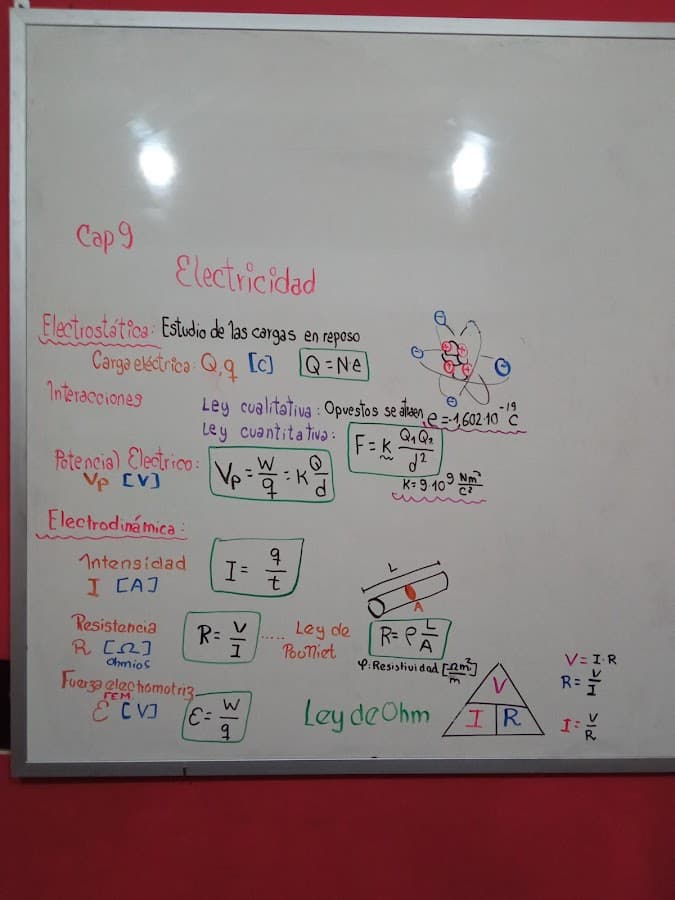 Cap 9
Electricidad
Electrostática: Estudio de las cargas en reposo
Carga eléctrica: Q, q [C] Q = Ne
Interacciones
Ley cualitativa: Opuestos se atraen, e = -1,602·10⁻¹⁹ C
Ley cuantitativa: F = K Q₁Q₂/d²
K = 9·10⁹ Nm²/C²
Potencial Electrico: Vp = W/q = K Q/d
Vp [V]
Electrodinámica:
Intensidad I = q/t
I [A]
L
A
Resistencia R = V/I ..... Ley de Pouillet R = ρ L/A
R [Ω]
Ohmios
φ: Resistividad [Ωm²/m]
Fuerza electromotriz
FEM.
Ɛ [V] Ɛ = W/q
Ley de Ohm
V
I R
V = I·R
R = V/I
I = V/R